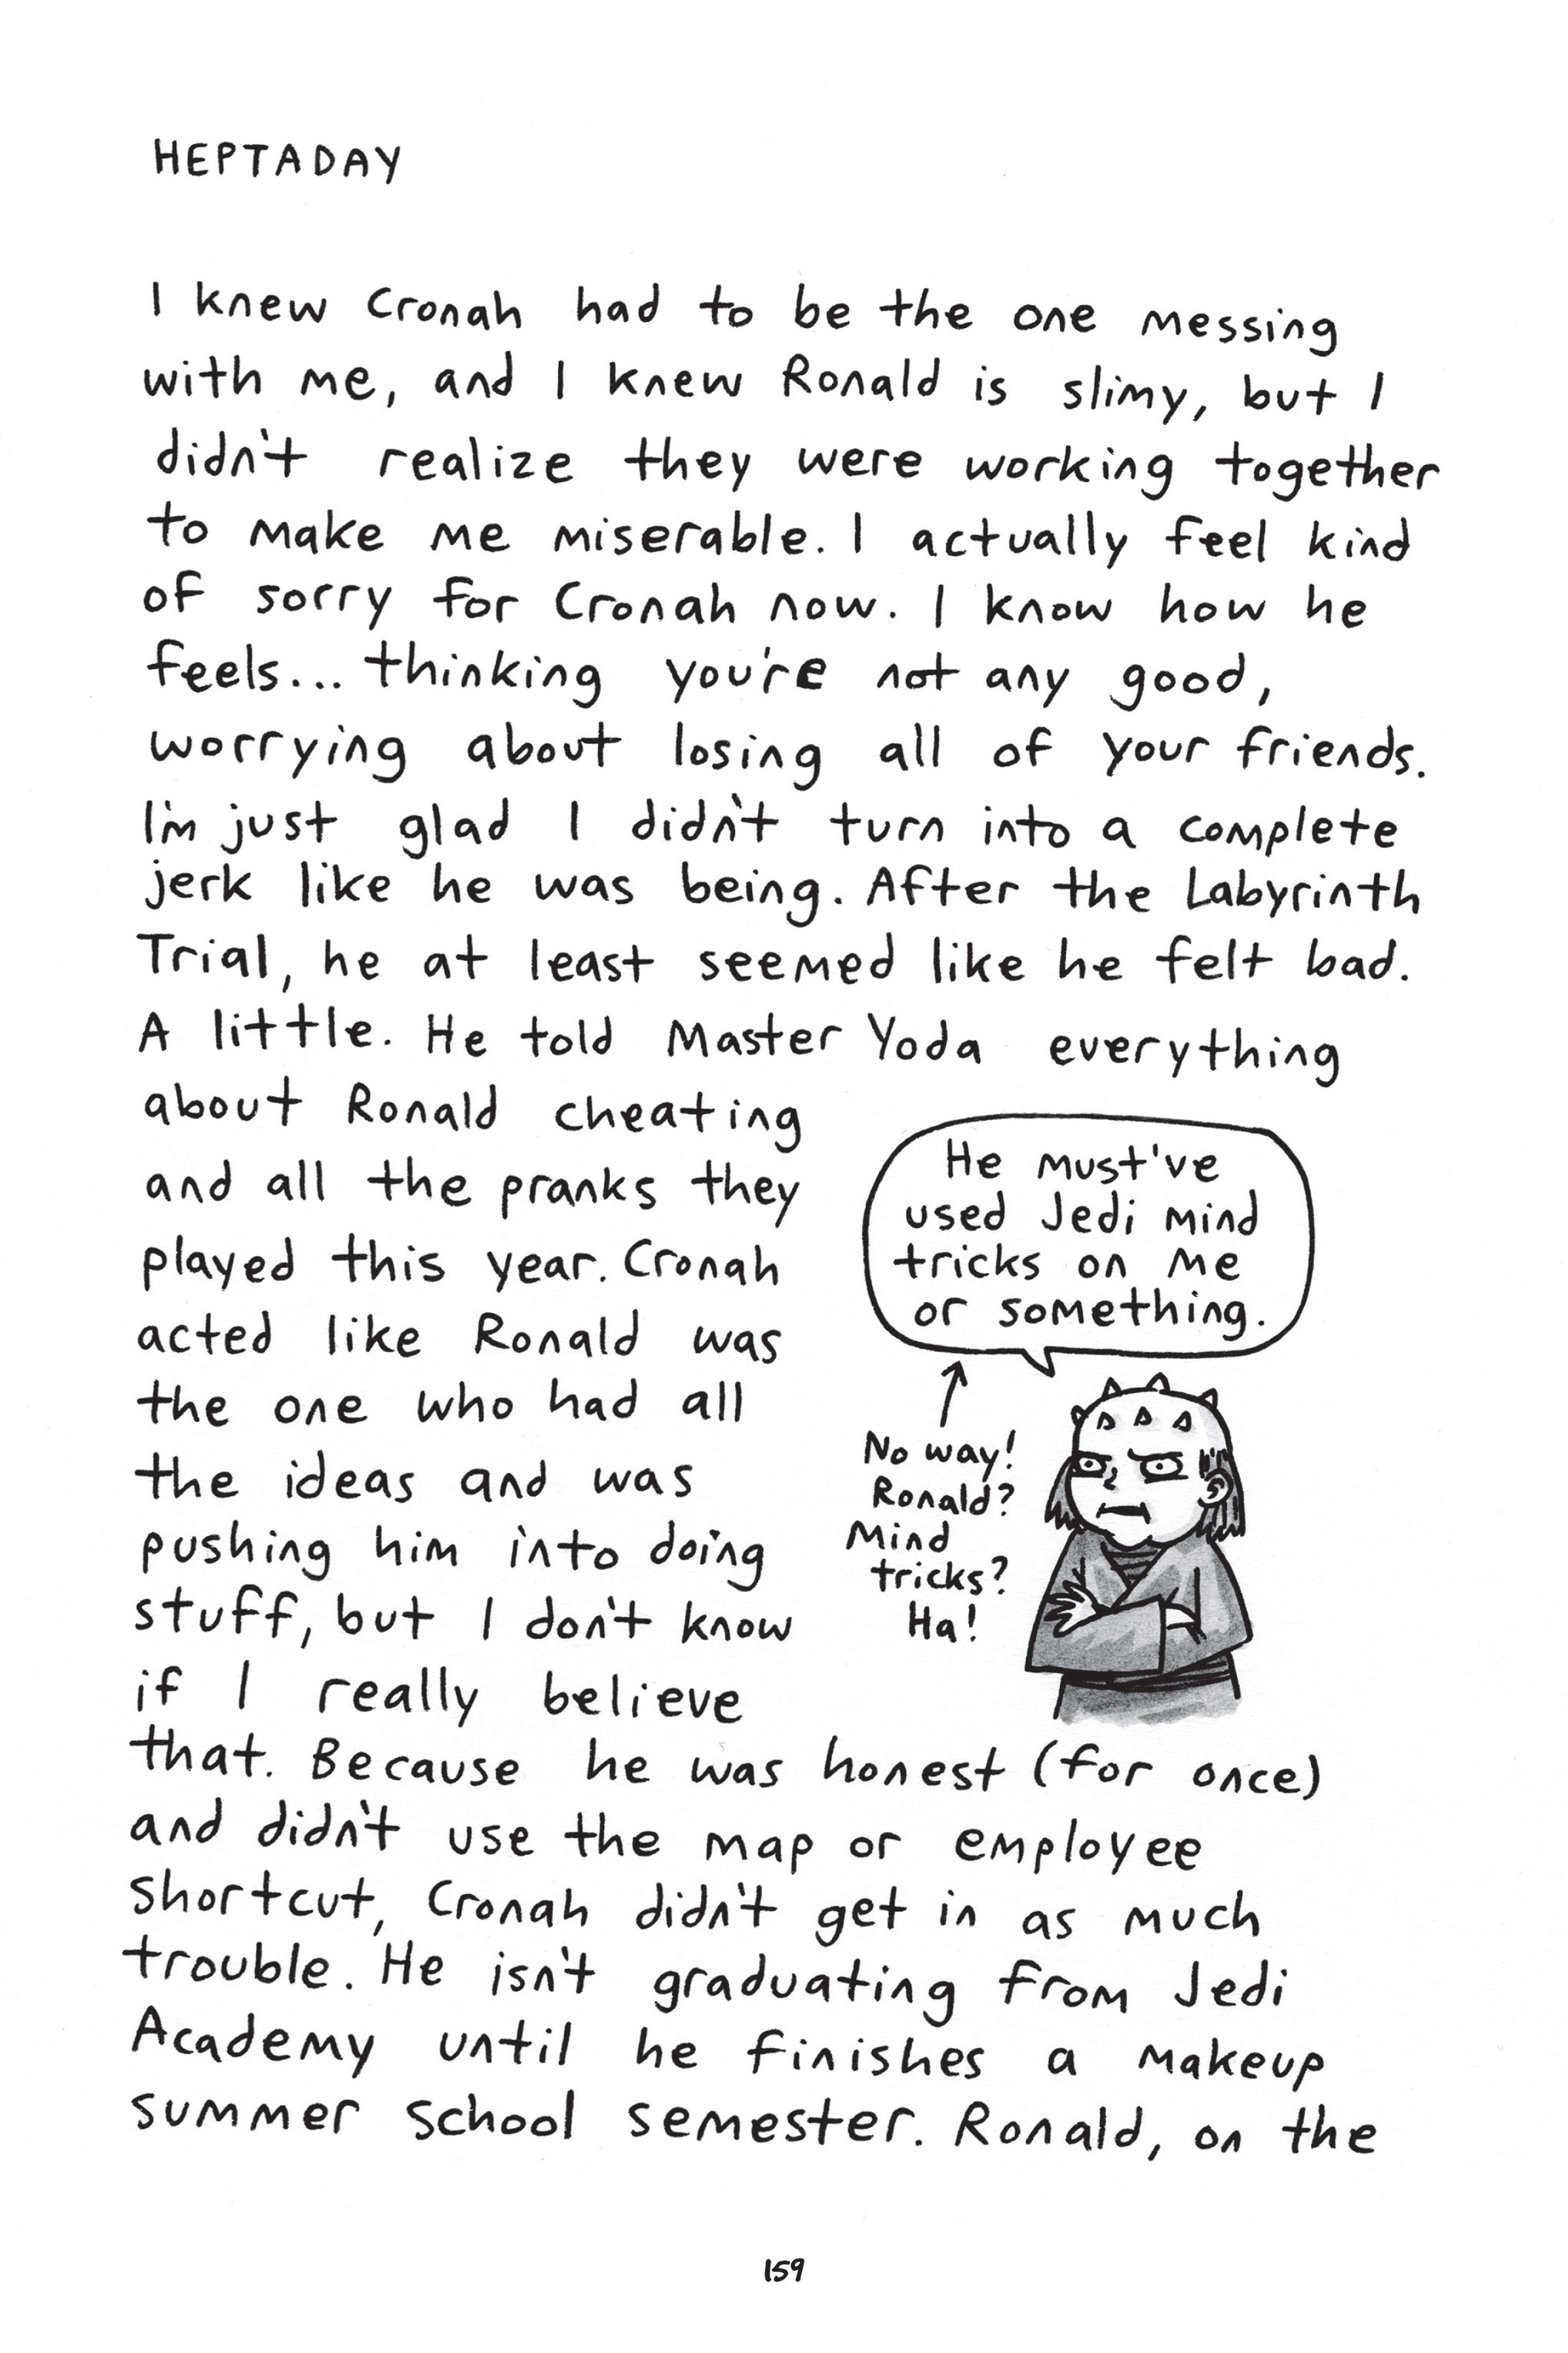 HEPTADAY
I knew Cronah had to be the one messing
with me, and I knew Ronald is slimy, but I
didn't realize they were working together
to make me miserable. I actually feel kind
of sorry for Cronah now. I know how he
feels... thinking you're not any good,
worrying about losing all of your friends.
I'm just glad I didn't turn into a complete
jerk like he was being. After the Labyrinth
Trial, he at least seemed like he felt bad.
A little. He told Master Yoda everything
about Ronald cheating
and all the pranks they
played this year. Cronah
acted like Ronald was
the one who had all
the ideas and was
pushing him into doing
stuff, but I don't know
if I really believe
He must've
used Jedi mind
tricks on me
or something.
No way!
Ronald?
Mind
tricks?
Ha!
that. Because he was honest (for once)
and didn't use the map or employee
shortcut, Cronah didn't get in as much
trouble. He isn't graduating from Jedi
Academy until he finishes a makeup
summer school semester. Ronald, on the
159